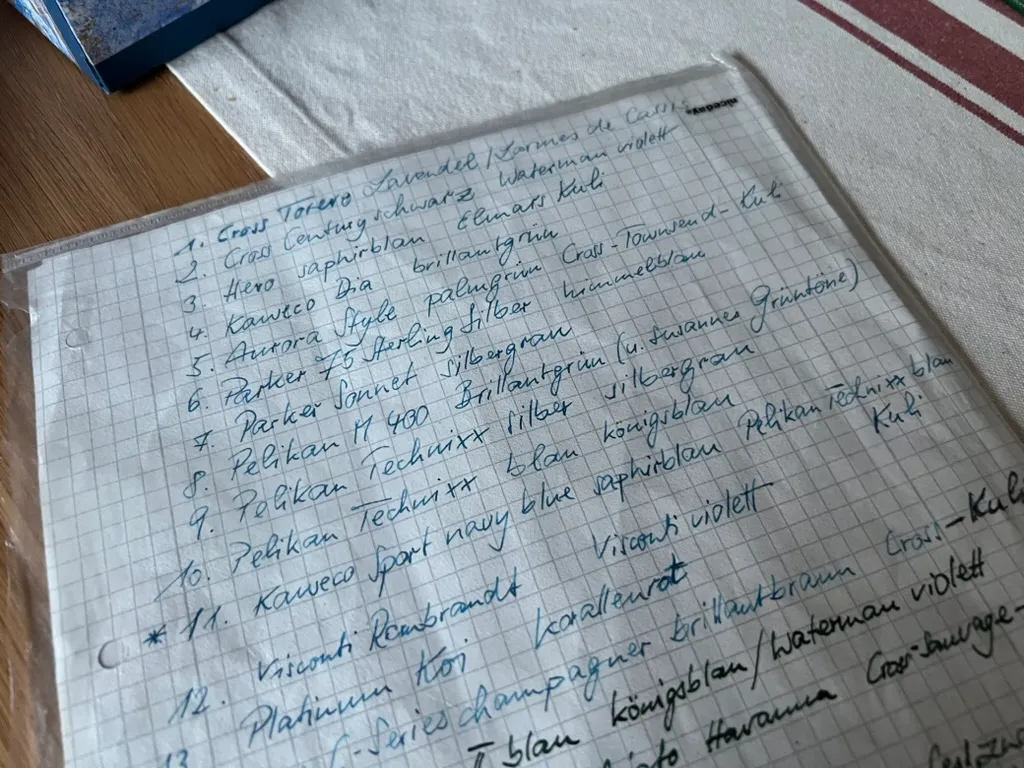 niceday
1. Cross Torero Lavendel/Larmes de Cassis
2. Cross Century schwarz Waterman violett
3. Hero saphirblau Elmars Kuli
4. Kaweco Dia brillantgrün
5. Aurora Style palmgrün Cross-Townsend-Kuli
6. Parker 75 Sterling Silber himmelblau
7. Parker Sonnet silbergrau
8. Pelikan M 400 Brillantgrün (u. Susannes Grüntöne)
9. Pelikan Technixx silber silbergrau
10. Pelikan Technixx blau königsblau
* 11. Kaweco Sport navy blue saphirblau Pelikan Technixx blau Kuli
12. Visconti Rembrandt Visconti violett
13. Platinum Koi korallenrot
C-Series champagner brillantbraun Cross-Kuli
II blau königsblau/Waterman violett
Havanna Cross-Sauvage-